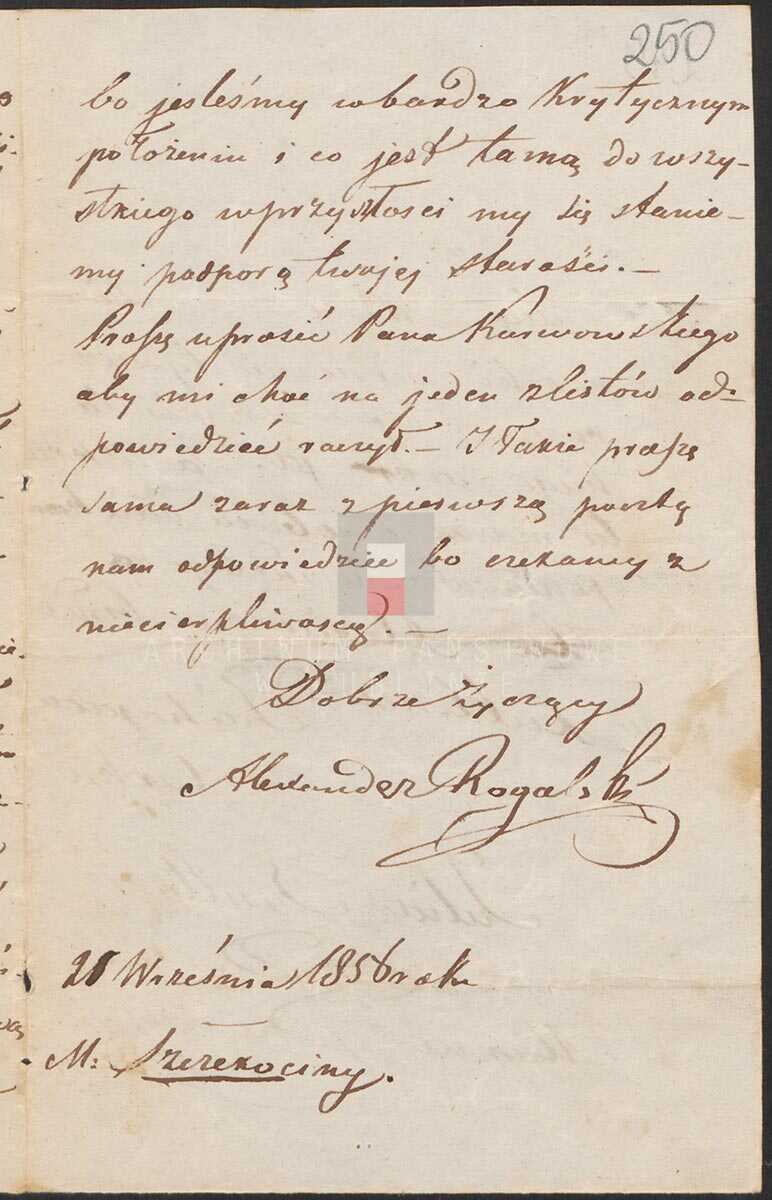 250
bo jesteśmy w bardzo Krytycznym
położeniu i co jest tamą do wszy-
stkiego w przyszłosci my się stanie-
my podporą twojej starości. —
Proszę uprosić Pana Kurwowskiego
aby mi choć na jeden z listów od-
powiedzieć raczył. — I także proszę
sama zaraz z pierwszą pocztą
nam odpowiedziec bo czekamy z
niecierpliwoscią. —
ARCHIWUM PAŃSTWOWE
Dobrze Życzący
Alexander Rogalski
Września 1856 roku
M: Szczekociny.